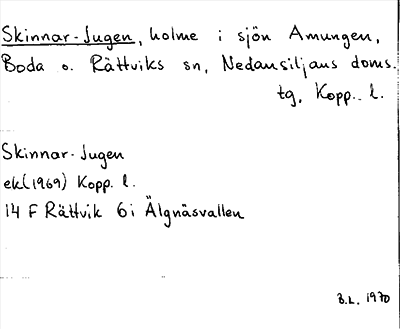 Skinnar-Jugen, holme i sjön Amungen,
Boda o. Rättviks sn, Nedansiljans doms.
tg, Kopp. l.
Skinnar-Jugen
ek(1969) Kopp. l.
14 F Rättvik 6i Älgnäsvallen
B.L. 1970